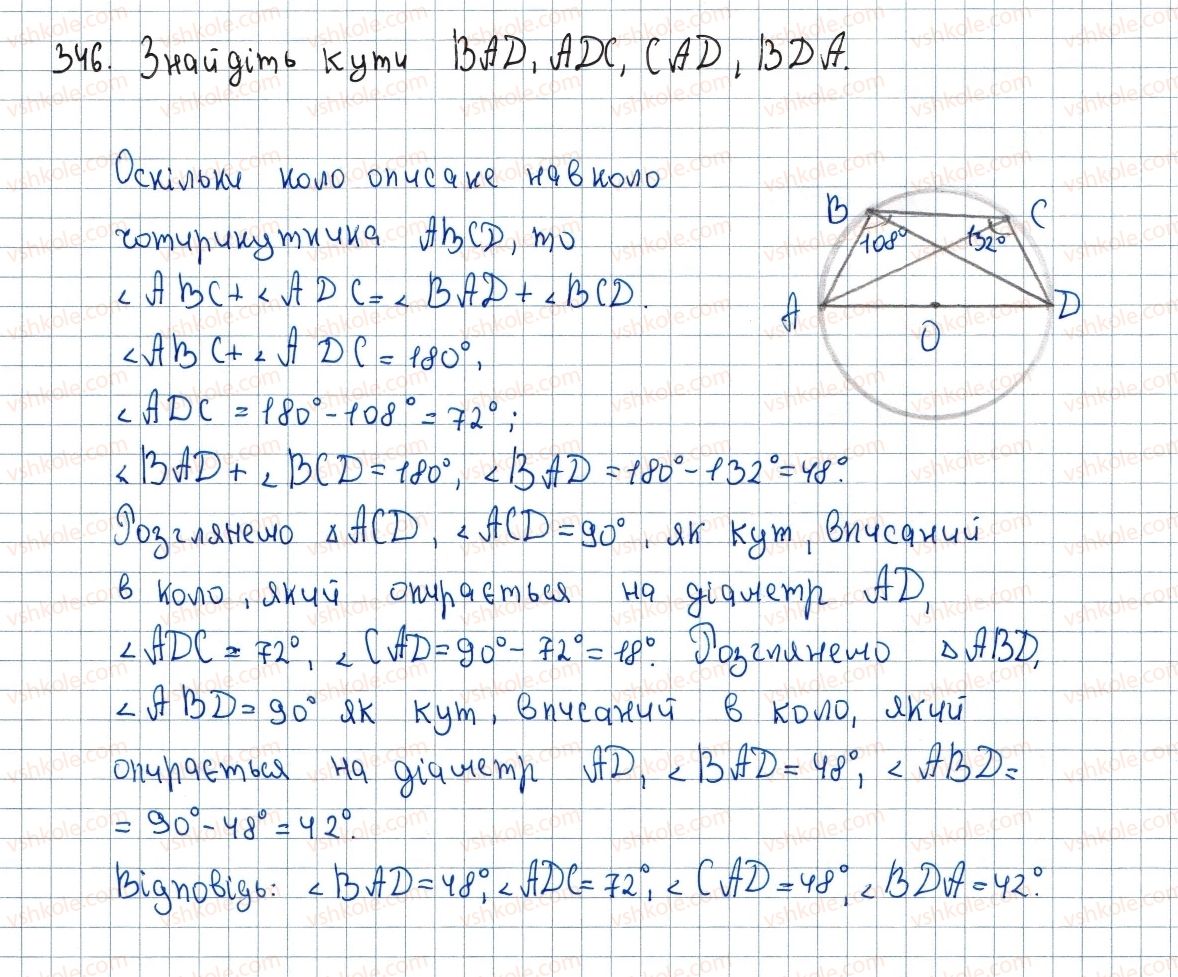 346. Знайдіть кути BAD, ADC, CAD, BDA.
Оскільки коло описане навколо
чотирикутника ABCD, то
∠ABC+∠ADC=∠BAD+∠BCD.
∠ABC+∠ADC=180°,
∠ADC=180°-108°=72°;
∠BAD+∠BCD=180°, ∠BAD=180°-132°=48°.
Розглянемо △ACD, ∠ACD=90°, як кут, вписаний
в коло, який опирається на діаметр AD,
∠ADC=72°, ∠CAD=90°-72°=18°. Розглянемо △ABD,
∠ABD=90° як кут, вписаний в коло, який
опирається на діаметр AD, ∠BAD=48°, ∠ABD=
=90°-48°=42°.
Відповідь: ∠BAD=48°, ∠ADC=72°, ∠CAD=48°, ∠BDA=42°.
B
C
108°
132°
A
D
O
vshkole.com